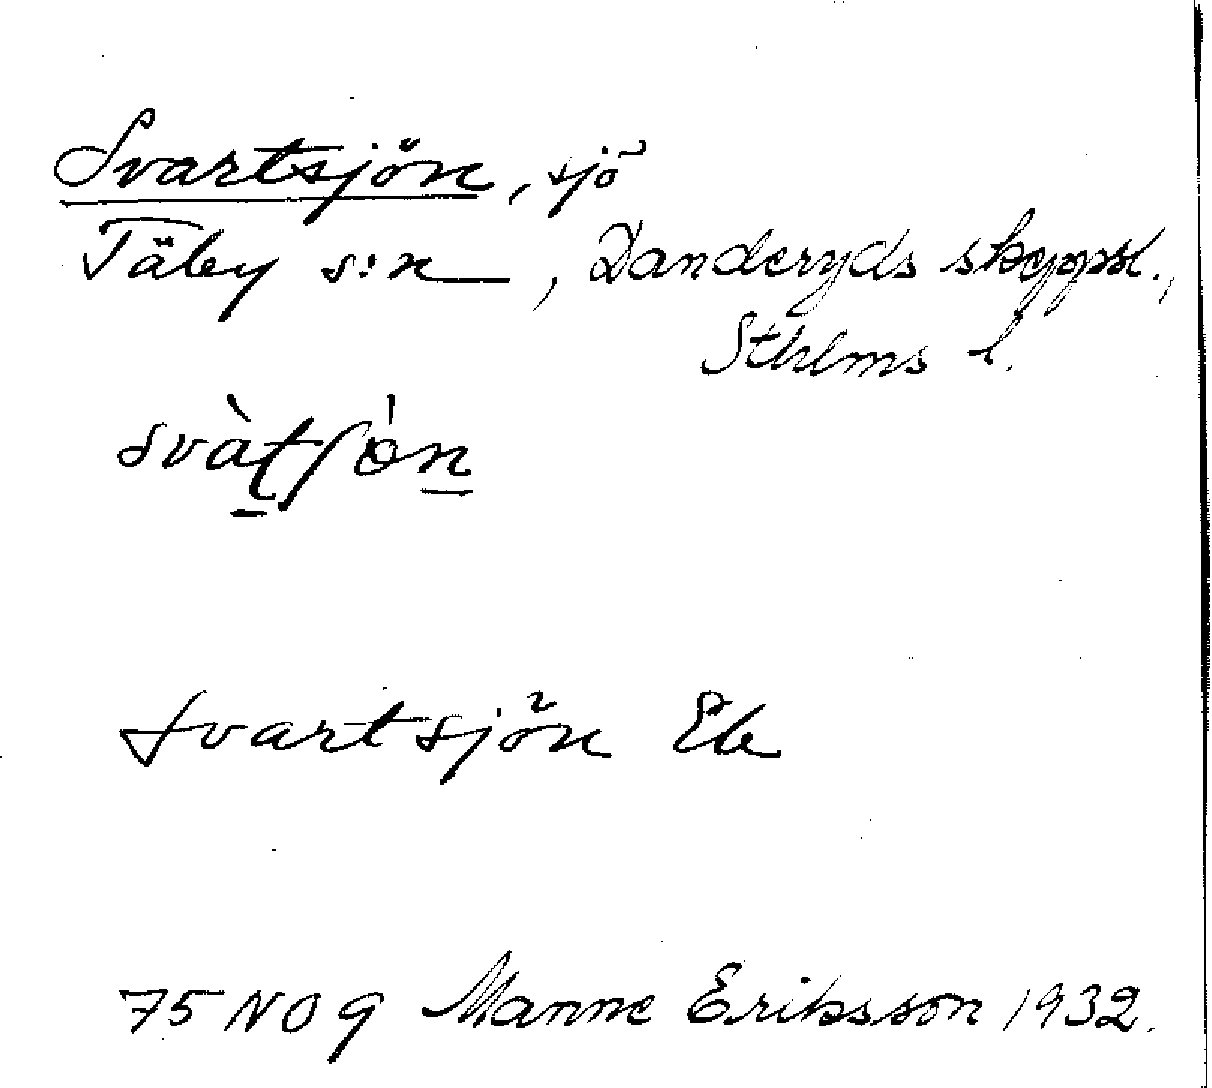 Svartsjön, sjö
Täby s:n, Danderyds skeppsl.,
Sthlms l.
svàtʃón
Svartsjön Ek
75 NO 9 Manne Eriksson 1932.